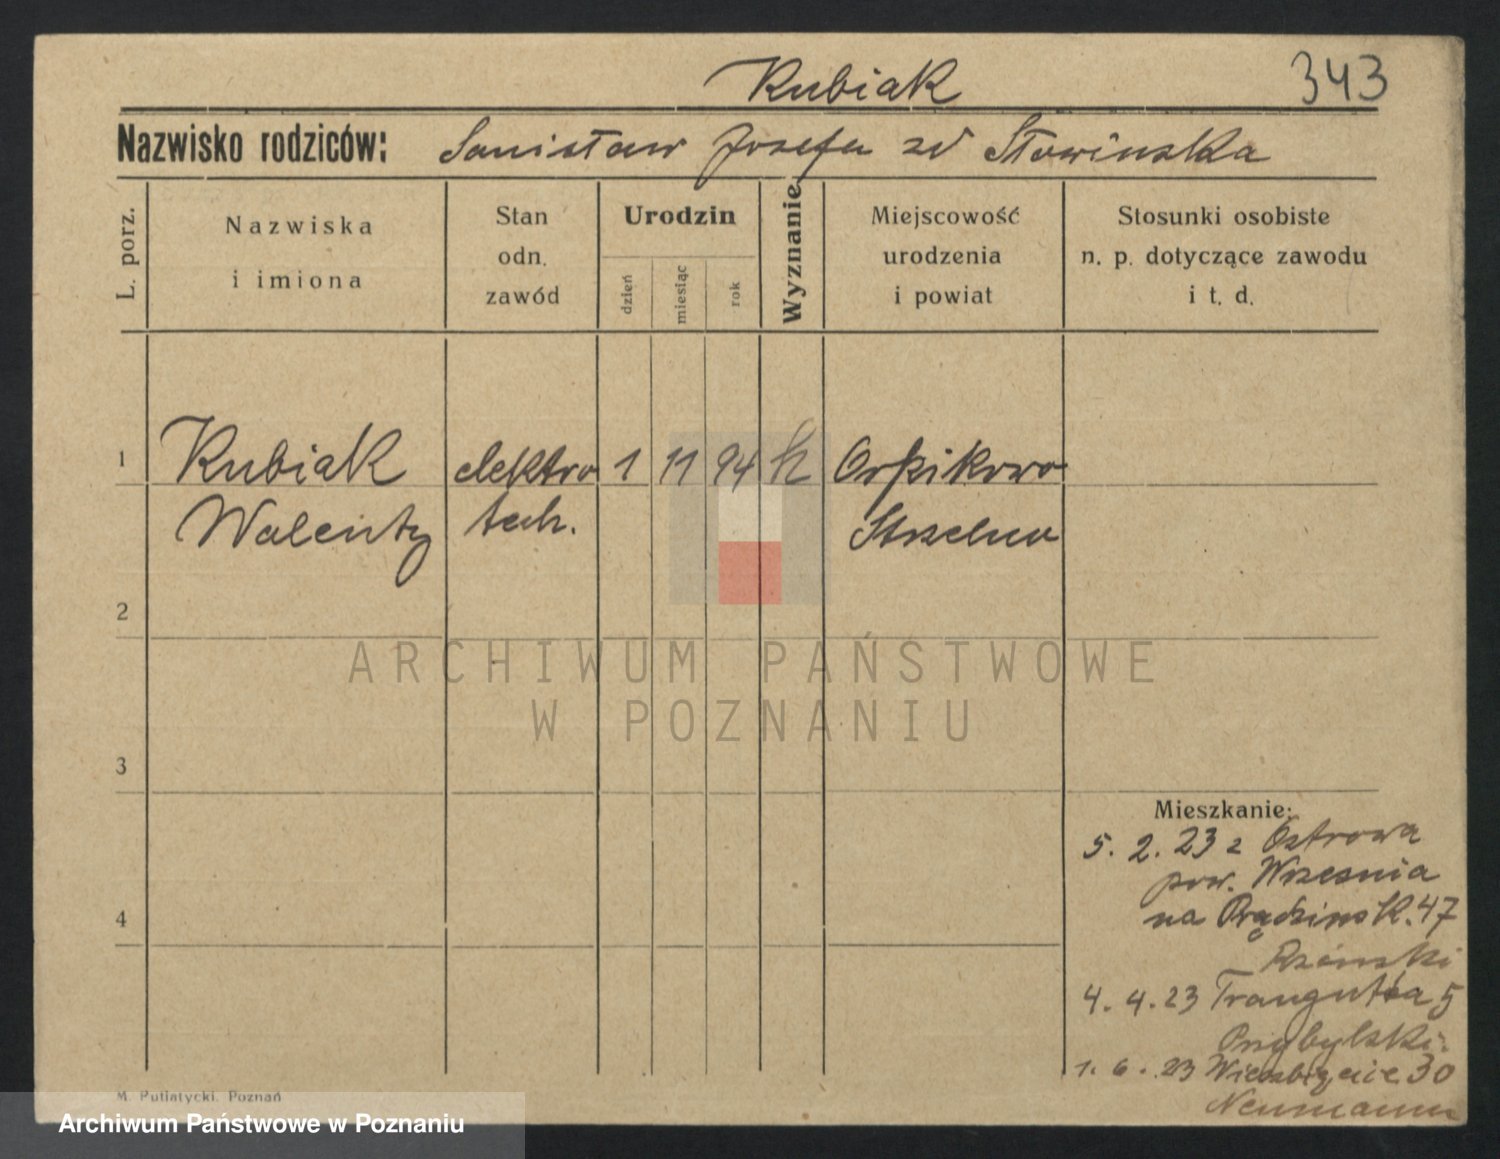 Kubiak 343
Nazwisko rodziców: Sanisław Josefa zd Słowinska
L. porz.
Nazwiska
i imiona
Stan
odn.
zawód
Urodzin
dzień
miesiąc
rok
Wyznanie
Miejscowość
urodzenia
i powiat
Stosunki osobiste
n. p. dotyczące zawodu
i t. d.
1 Kubiak elektro 1 11 94 k Orpikowo
Walenty tech. Strzelno
2
ARCHIWUM PAŃSTWOWE
W POZNANIU
3
Mieszkanie:
5. 2. 23 z Ostrowa
pow. Wrzesnia
4
na Prądzinsk. 47
4. 4. 23 Traugutta 5
Przybylski.
1. 6. 23 Wierzbięcice 30
Neumann
M. Putiatycki. Poznań
Archiwum Państwowe w Poznaniu